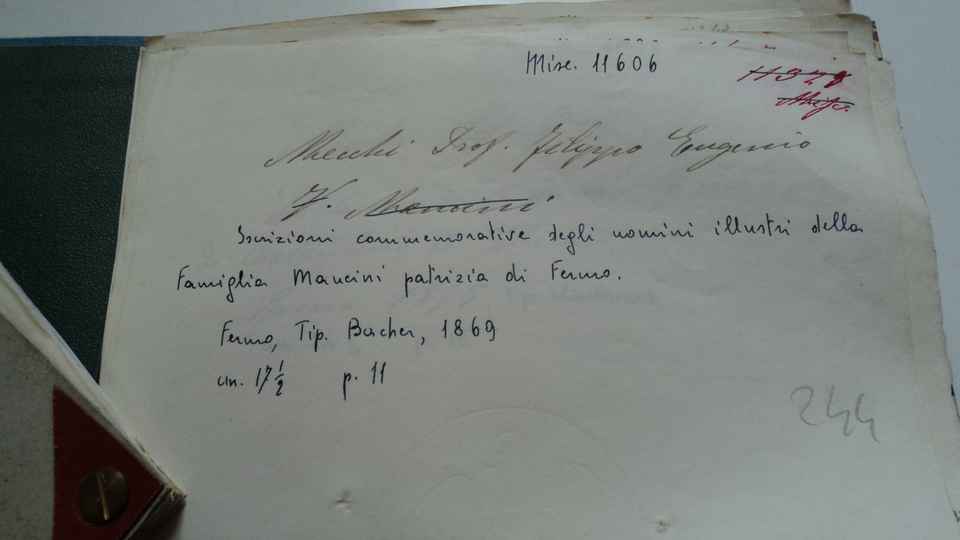 Misc. 11606
Mecchi Prof. Filippo Eugenio
V. Mancini
Iscrizioni commemorative degli uomini illustri della
Famiglia Mancini patrizia di Fermo.
Fermo, Tip. Bacher, 1869
cm. 17 1/2 p. 11
244